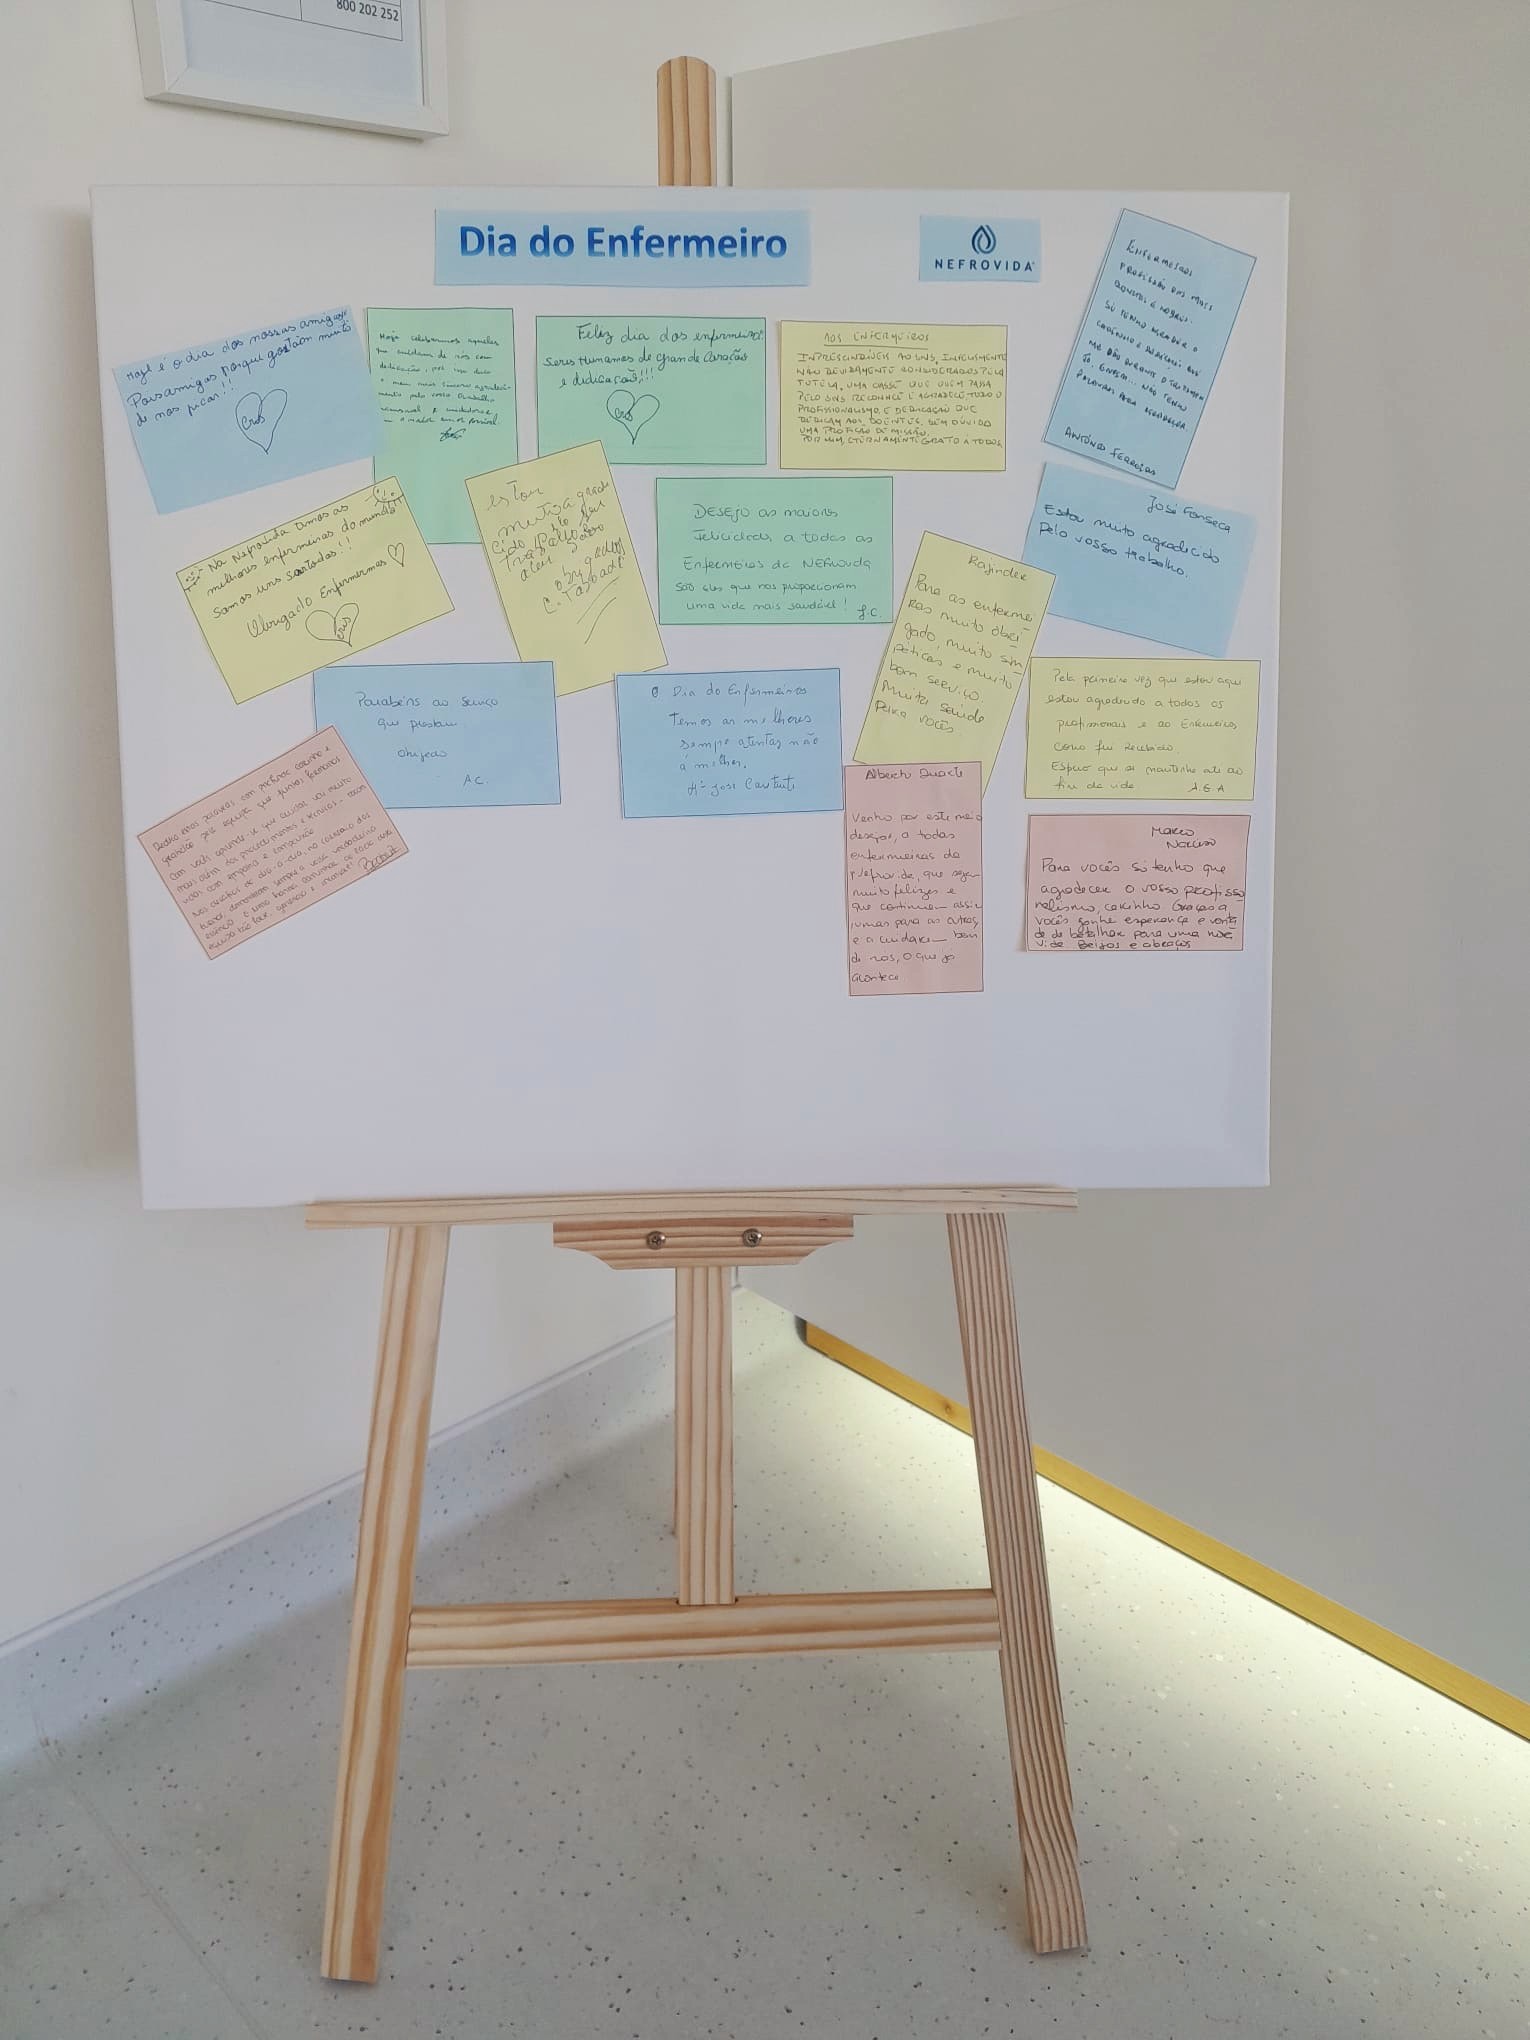 800 202 252
Dia do Enfermeiro
NEFROVIDA
Hoje é o dia das nossas amigas
Pois amigas porque gostam muito
de nos picar!!
Cris
Hoje celebramos aqueles
que cuidam de nós com
dedicação, por isso
o meu mais sincero
pelo vosso trabalho
e
o maior amor
Feliz dia dos enfermeiros
Seres Humanos de grande Coração
e didicação!!!
Cris
AOS ENFERMEIROS
IMPRESCINDÍVEIS AO SNS, INFELISMENTE
NÃO DEVIDAMENTE CONSIDERADOS PELA
TUTELA, UMA CLASSE QUE QUEM PASSA
PELO SNS RECONHECE E AGRADECE TODO O
PROFISSIONALISMO, E DEDICAÇÃO QUE
DEDICAM AOS DOENTES, SEM DÚVIDA
UMA PROFIÇÃO DE MISSÃO.
POR MIM, ETERNAMENTE GRATO A TODOS
ENFERMEIROS
PROFISSÃO DAS MAIS
NOBRES.
SÓ TENHO AGRADECER O
CARINHO E
ME DÃO DURANTE O TRATAMENTO
NÃO TENHO
PALAVRAS PARA AGRADECER
ANTÓNIO FERREIRA
Na Nefrovida temos as
melhores enfermeiras do mundo
Somos uns sortudos!!
Obrigado Enfermeiras
Cris
estou
muito
trabalho
C.
DESEJO as maiores
felicidades a todas as
Enfermeiras da Nefrovida
São elas que nos proporcionam
uma vida mais saudável!
J.C.
José Fonseca
Estou muito agradecido
pelo vosso trabalho.
Rajinder
Para as enfermei
ras muito obri
gado, muito sim
páticas e muito
bom serviço.
Muita saúde
para vocês
Parabéns ao serviço
que prestam.
Obrigado
A.C.
O Dia do Enfermeiros
Temos as melhores
sempre atentas não
á melhor.
Pela primeira vez que estou aqui
estou agradecido a todos os
profissionais e ao Enfermeiros
como fui recebido.
Espero que se mantenha até ao
fim da vida. A.G.A
Dedico estas palavras com profundo carinho e
gratidão pela equipa que juntos formamos
Com vocês aprende-se que cuidar vai muito
mais além dos procedimentos e técnicas
com empatia e compaixão
Nos desafios do dia-a-dia, no cansaço dos
turnos, demonstram sempre a vossa verdadeira
essência. É uma honra caminhar ao lado desta
equipa tão forte, generosa e incansável!
Alberto Duarte
Venho por este meio
desejar, a todas
enfermeiras da
nefrovida, que sejam
muito felizes e
que continuem assim
umas para as outras,
e a cuidarem bem
de nós, o que já
acontece
Marco
Narciso
Para vocês só tenho que
agradecer o vosso profissio
nalismo, carinho Graças a
vocês ganhei esperança e vonta
de de batalhar para uma nova
vida. Beijos e abraços